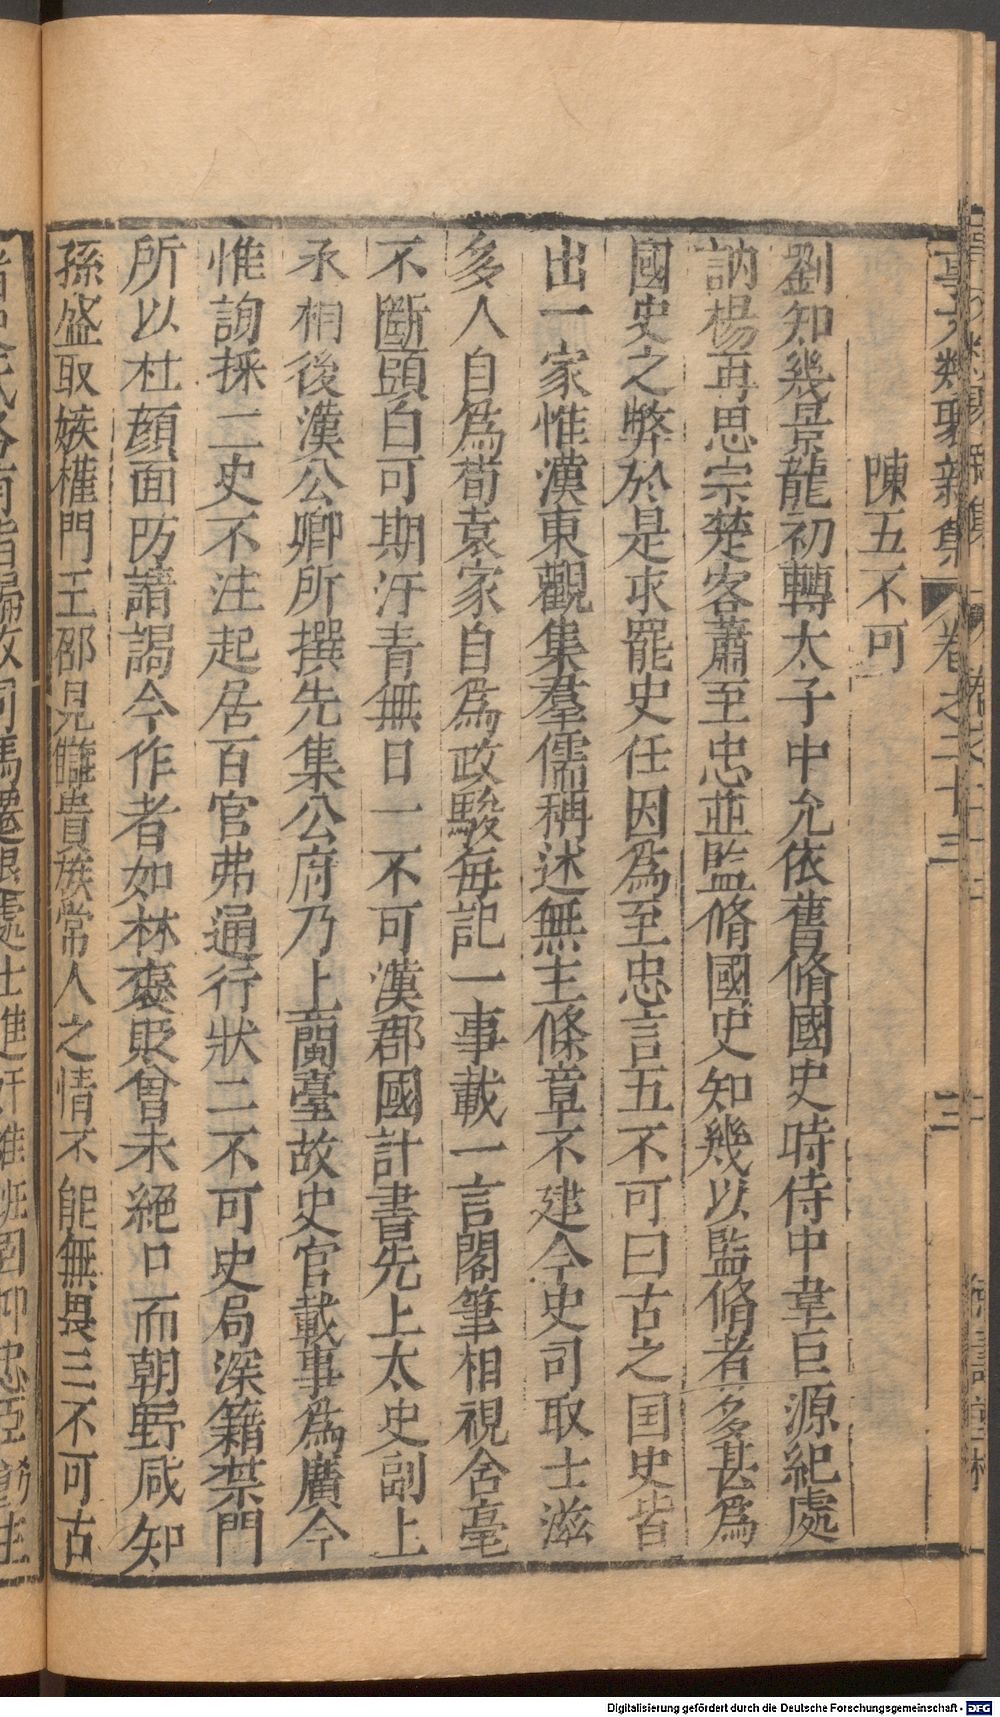 事文類聚新集 卷之二十三 三
陳五不可
劉知幾景龍初轉太子中允依舊脩國史時侍中韋巨源紀處
訥楊再思宗楚客蕭至忠並監脩國史知幾以監脩者多甚為
國史之弊於是求罷史任因為至忠言五不可曰古之国史皆
出一家惟漢東觀集羣儒稱述無主條章不建今史司取士滋
多人自為荀袁家自為政駿每記一事載一言閣筆相視含毫
不斷頭白可期汗青無日一不可漢郡國計書先上太史副上
丞相後漢公卿所撰先集公府乃上蘭臺故史官載事為廣今
惟詢採二史不注起居百官弗通行狀二不可史局深籍禁門
所以杜顔面防請謁今作者如林褒貶曾未絕口而朝野咸知
孫盛取嫉權門王邵見讎貴族常人之情不能無畏三不可古
Digitalisierung gefördert durch die Deutsche Forschungsgemeinschaft - DFG